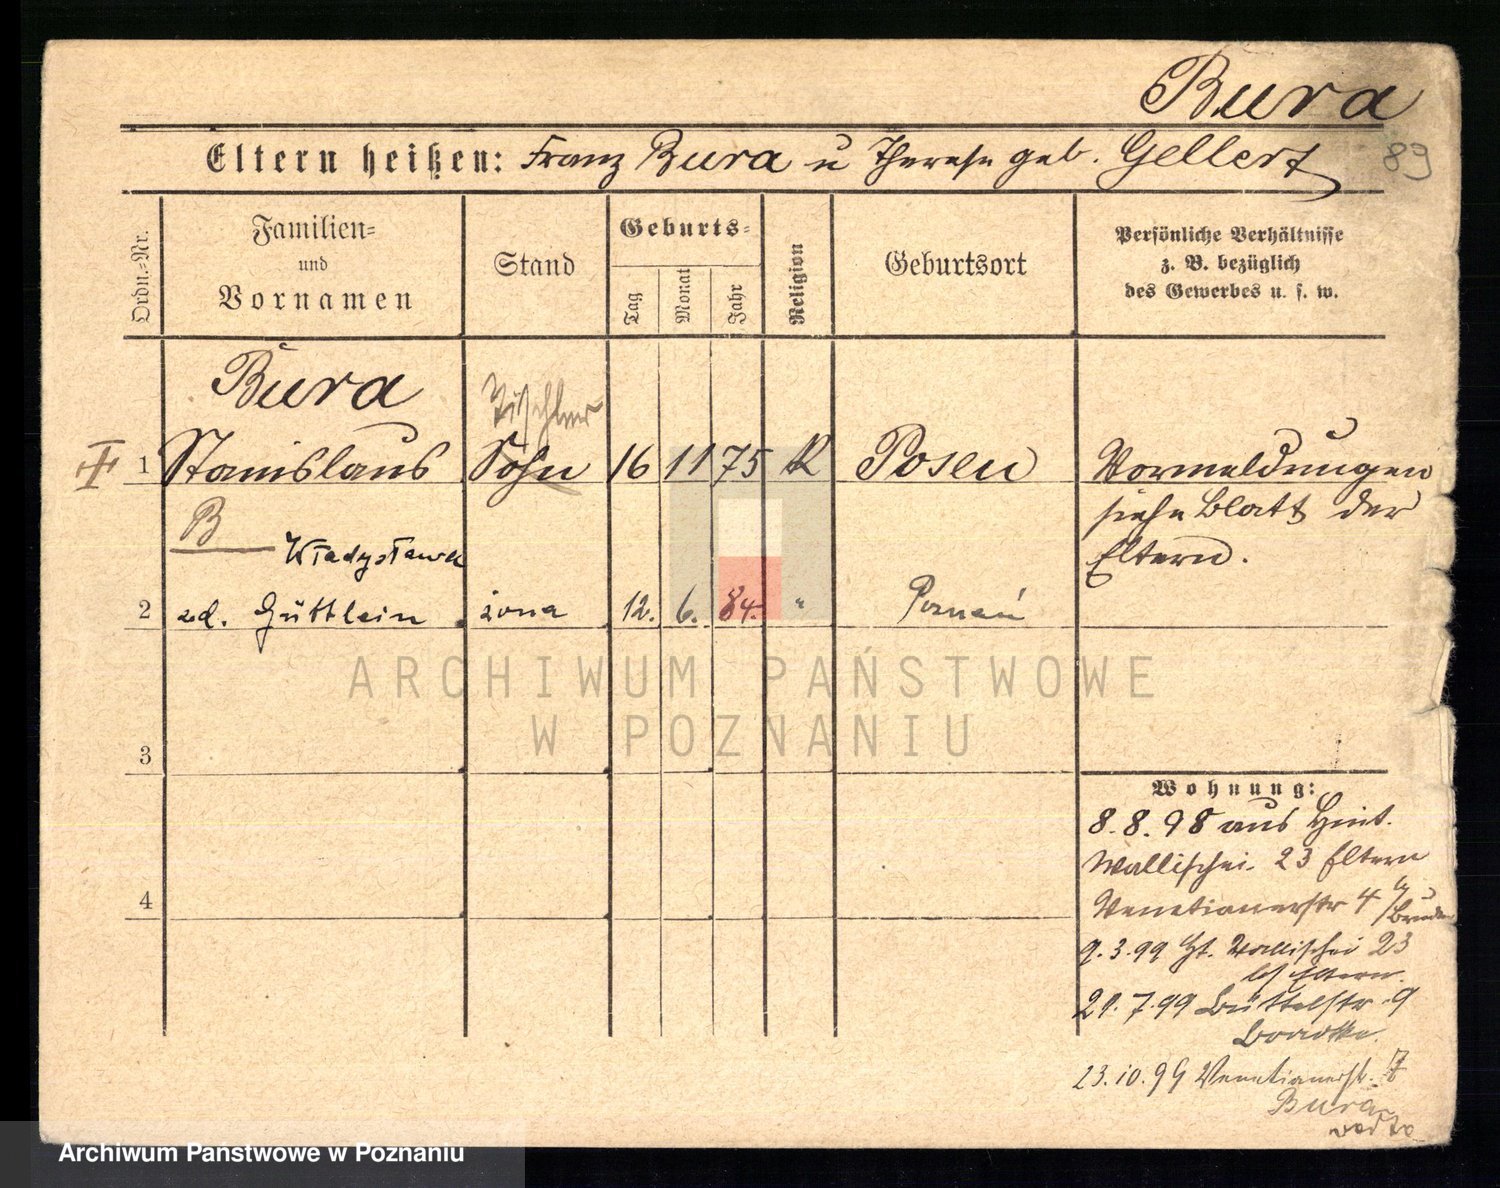 Bura
Eltern heißen: Franz Bura u Therese geb. Gellert
89
Ordn.=Nr.
Familien=
und
Vornamen
Stand
Geburts=
Tag
Monat
Jahr
Religion
Geburtsort
Persönliche Verhältnisse
z. B. bezüglich
des Gewerbes u. s. w.
Bura
Tischler
1 Stanislaus Sohn 16 11 75 K Posen Vormeldungen
siehe Blatt der
Eltern.
B
Władysława
2 zd. Güttlein żona 12. 6. 84. " Poznań
ARCHIWUM PAŃSTWOWE
W POZNANIU
3
Wohnung:
8.8.98 aus Hint.
Wallischei. 23 Eltern
4
Venetianerstr 4 b/Bruder
9.3.99 Ht. Wallischei 23
b/ Eltern.
21.7.99 Büttelstr. 9
23.10.99 Venetianerstr. 7
Bura
Archiwum Państwowe w Poznaniu